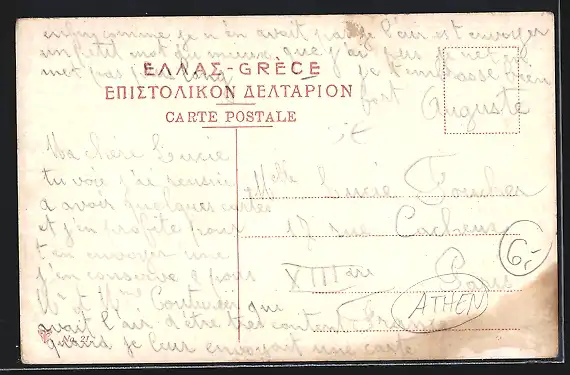 enfin comme je n'en avait pas je l'air est envoyer
un petit mot du mieux que j'ai pus je ne
met pas plus long je t'embrasse bien
fort Auguste
ΕΛΛΑΣ-GRÈCE
ΕΠΙΣΤΟΛΙΚΟΝ ΔΕΛΤΑΡΙΟΝ
CARTE POSTALE
Ma chère Lucie
tu voie j'ai reussie
a avoir quelques cartes
et j'en profite pour
t'en envoyer une
j'en conserve 2 pour
Mr et Mme Couturier qui
avait l'air d'être tres content
quand je leur envoyait une carte
Melle Lucie
17 rue
XIII arr Paris
France
6,-
ATHEN